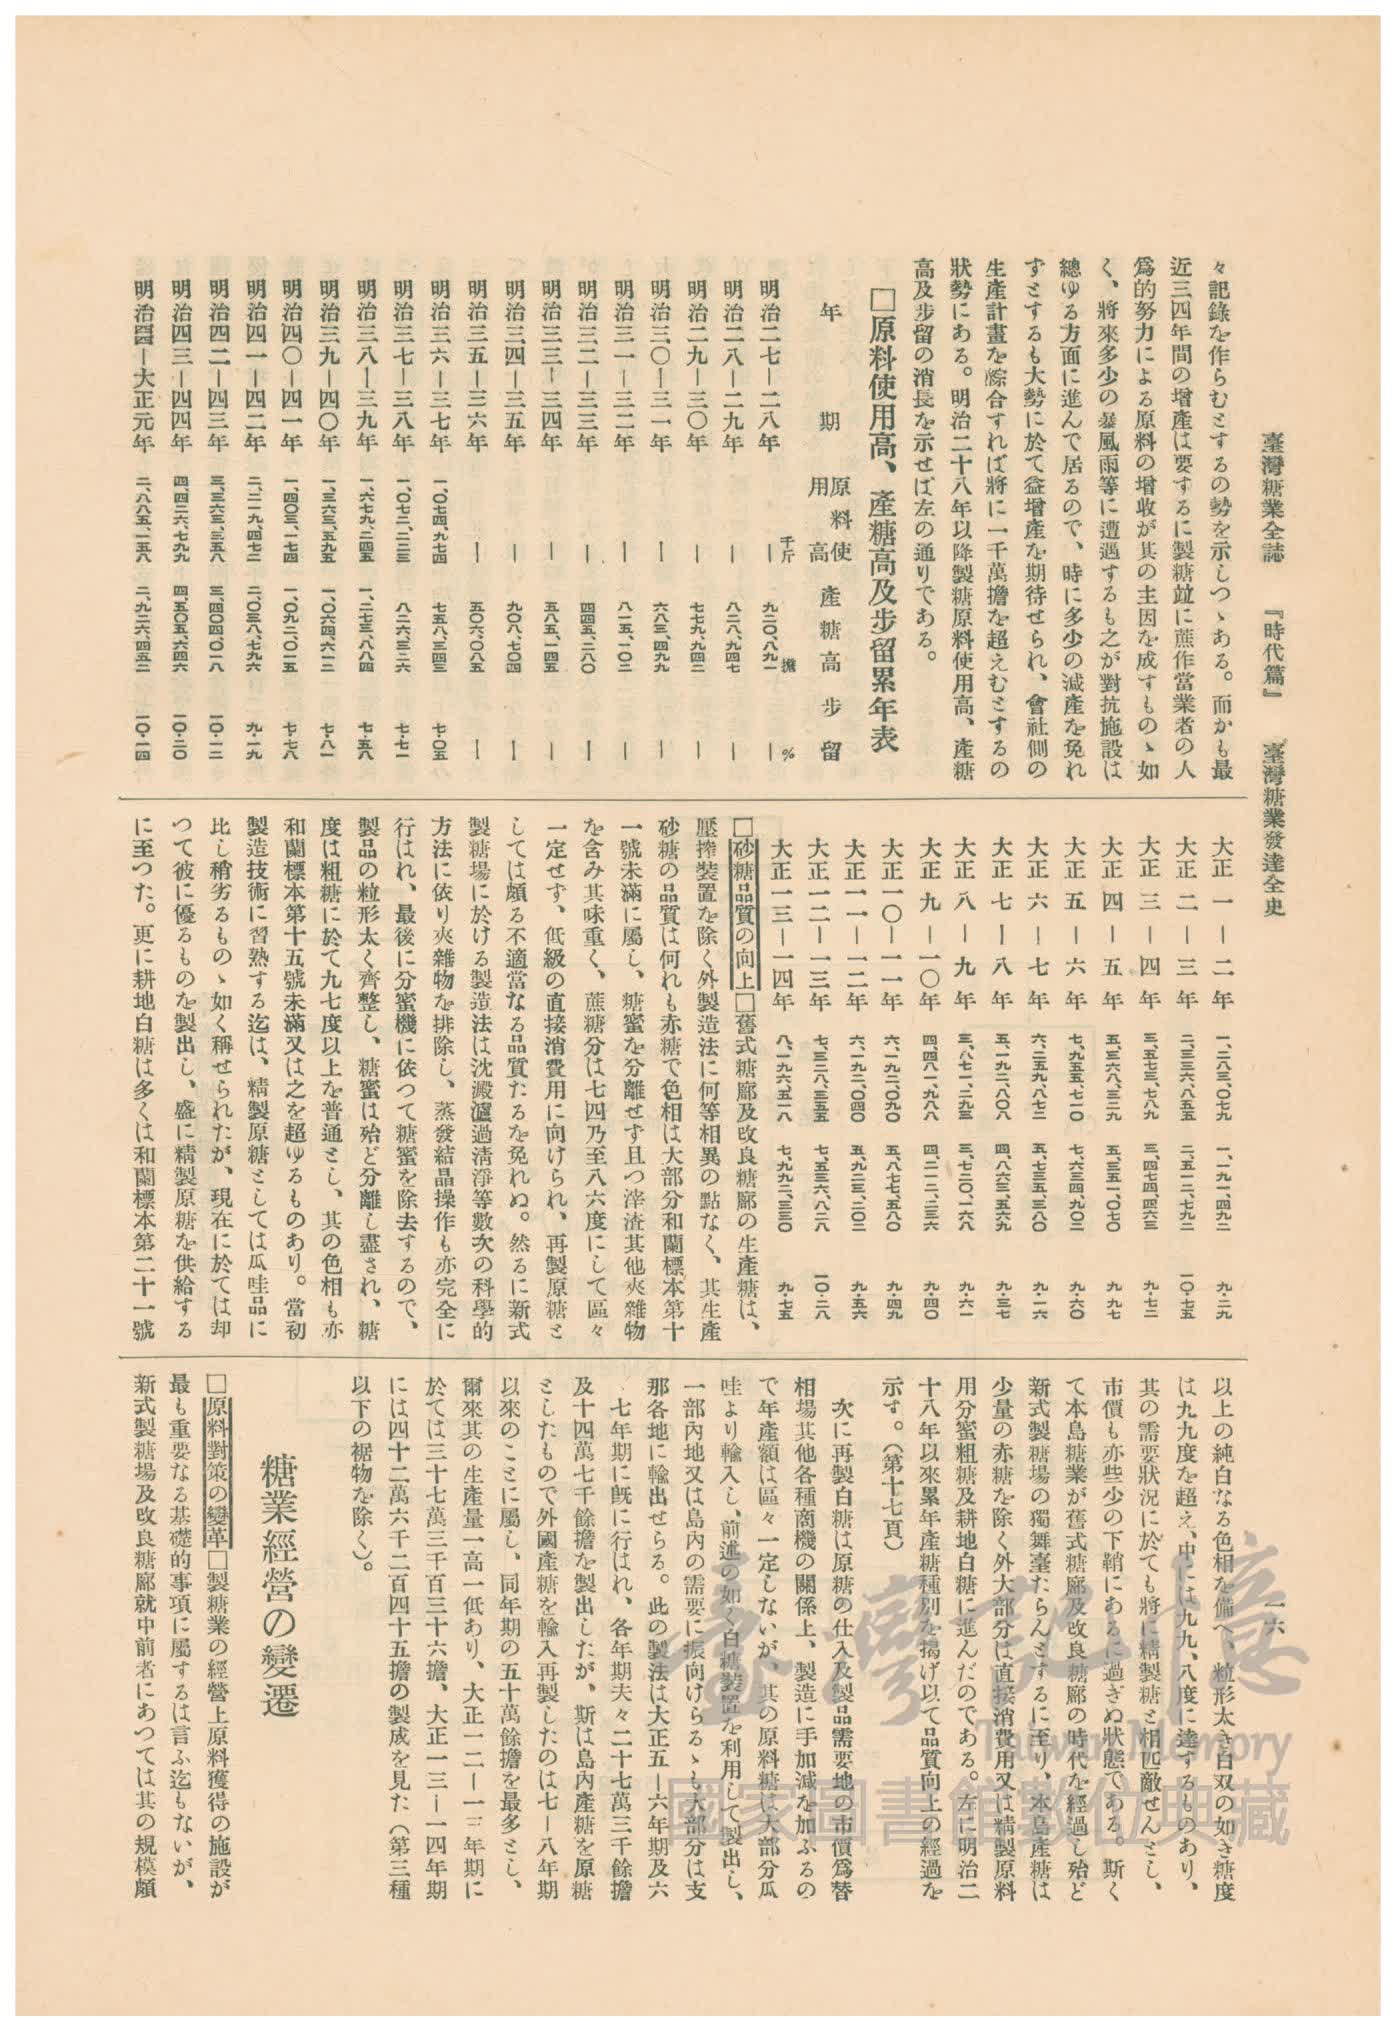 臺灣糖業全誌 『時代篇』 臺灣糖業發達全史
一六
々記錄を作らむとするの勢を示しつゝある。而かも最
近三四年間の增產は要するに製糖竝に蔗作當業者の人
爲的努力による原料の增收が其の主因を成すものゝ如
く、將來多少の暴風雨等に遭遇するも之が對抗施設は
總ゆる方面に進んで居るので、時に多少の減產を免れ
すとするも大勢に於て益增產を期待せられ、會社側の
生產計畫を綜合すれば將に一千萬擔を超えむとするの
狀勢にある。明治二十八年以降製糖原料使用高、產糖
高及步留の消長を示せば左の通りである。
□原料使用高、產糖高及步留累年表
年期 原料使用高 產糖高 步留
千斤 擔 %
明治二七—二八年 — 九二〇、八九一 —
明治二八—二九年 — 八二八、九四七 —
明治二九—三〇年 — 七七九、九四二 —
明治三〇—三一年 — 六八三、四九九 —
明治三一—三二年 — 八一五、一〇二 —
明治三二—三三年 — 四四五、二八〇 —
明治三三—三四年 — 五八五、一四五 —
明治三四—三五年 — 九〇八、七〇四 —
明治三五—三六年 — 五〇六、〇八五 —
明治三六—三七年 一、〇七四、九七四 七五八、三四三 七・〇五
明治三七—三八年 一、〇七二、二二三 八二六、三二六 七・七一
明治三八—三九年 一、六七九、二四五 一、二七三、八八四 七・五八
明治三九—四〇年 一、三六三、五九五 一、〇六四、六一二 七・八一
明治四〇—四一年 一、四〇三、一七四 一、〇九二、〇一五 七・七八
明治四一—四二年 二、二一九、四七二 二、〇三八、七九六 九・一九
明治四二—四三年 三、三六三、三五八 三、四〇四、〇一八 一〇・一二
明治四三—四四年 四、四二六、七九九 四、五〇五、六四六 一〇・二〇
明治四四—大正元年 二、八八五、一五八 二、九二六、四五二 一〇・一四
大正一—二年 一、二八三、〇七九 一、一九一、四九二 九・二九
大正二—三年 二、三三六、八五五 二、五一二、七九二 一〇・七五
大正三—四年 三、五七三、七八九 三、四七四、四六三 九・七二
大正四—五年 五、三六八、三二九 五、三五一、〇七〇 九・九七
大正五—六年 七、九五五、七二〇 七、六三四、九〇二 九・六〇
大正六—七年 六、二五九、八七二 五、七三五、三八〇 九・一六
大正七—八年 五、一九二、八〇八 四、八六三、五六九 九・三七
大正八—九年 三、八七一、二九五 三、七二〇、一六八 九・六一
大正九—一〇年 四、四八一、九八八 四、二一二、二三六 九・四〇
大正一〇—一一年 六、一九二、〇九〇 五、八七七、五八〇 九・四九
大正一一—一二年 六、一九二、〇四〇 五、九二三、二〇二 九・五六
大正一二—一三年 七、三二八、三五五 七、五三六、八二八 一〇・二八
大正一三—一四年 八、一九六、五一八 七、九九二、三三〇 九・七五
□砂糖品質の向上□舊式糖廍及改良糖廍の生產糖は、
壓搾裝置を除く外製造法に何等相異の點なく、其生產
砂糖の品質は何れも赤糖で色相は大部分和蘭標本第十
一號未滿に屬し、糖蜜を分離せず且つ滓渣其他夾雜物
を含み其味重く、蔗糖分は七四乃至八六度にして區々
一定せず、低級の直接消費用に向けられ、再製原糖と
しては頗る不適當なる品質たるを免れぬ。然るに新式
製糖場に於ける製造法は沈澱瀘過淸淨等數次の科學的
方法に依り夾雜物を排除し、蒸發結晶操作も亦完全に
行はれ、最後に分蜜機に依つて糖蜜を除去するので、
製品の粒形太く齊整し、糖蜜は殆ど分離し盡され、糖
度は粗糖に於て九七度以上を普通とし、其の色相も亦
和蘭標本第十五號未滿又は之を超ゆるものあり。當初
製造技術に習熟する迄は、精製原糖としては瓜哇品に
比し稍劣るものゝ如く稱せられたが、現在に於ては却
つて彼に優るものを製出し、盛に精製原糖を供給する
に至つた。更に耕地白糖は多くは和蘭標本第二十一號
以上の純白なる色相を備へ、粒形太き白双の如き糖度
は九九度を超え、中には九九、八度に達するものあり、
其の需要狀況に於ても將に精製糖と相匹敵せんとし、
市價も亦些少の下鞘にあるに過ぎぬ狀態である。斯く
て本島糖業が舊式糖廍及改良糖廍の時代を經過し殆ど
新式製糖場の獨舞臺たらんとするに至り、本島產糖は
少量の赤糖を除く外大部分は直接消費用又は精製原料
用分蜜粗糖及耕地白糖に進んだのである。左に明治二
十八年以來累年產糖種別を揭げ以て品質向上の經過を
示す。（第十七頁）
次に再製白糖は原糖の仕入及製品需要地の市價爲替
相場其他各種商機の關係上、製造に手加減を加ふるの
で年產額は區々一定しないが、其の原料糖は大部分瓜
哇より輸入し、前述の如く白糖裝置を利用して製出し、
一部內地又は島內の需要に振向けらるゝも大部分は支
那各地に輸出せらる。此の製法は大正五—六年期及六
七年期に既に行はれ、各年期夫々二十七萬三千餘擔
及十四萬七千餘擔を製出したが、斯は島內產糖を原糖
としたもので外國產糖を輸入再製したのは七—八年期
以來のことに屬し、同年期の五十萬餘擔を最多とし、
爾來其の生產量一高一低あり、大正一二—一三年期に
於ては三十七萬三千百三十六擔、大正一三—一四年期
には四十二萬六千二百四十五擔の製成を見た（第三種
以下の裾物を除く）。
糖業經營の變遷
□原料對策の變革□製糖業の經營上原料獲得の施設が
最も重要なる基礎的事項に屬するは言ふ迄もないが、
新式製糖場及改良糖廍就中前者にあつては其の規模頗
臺灣記憶
Taiwan Memory
國家圖書館數位典藏